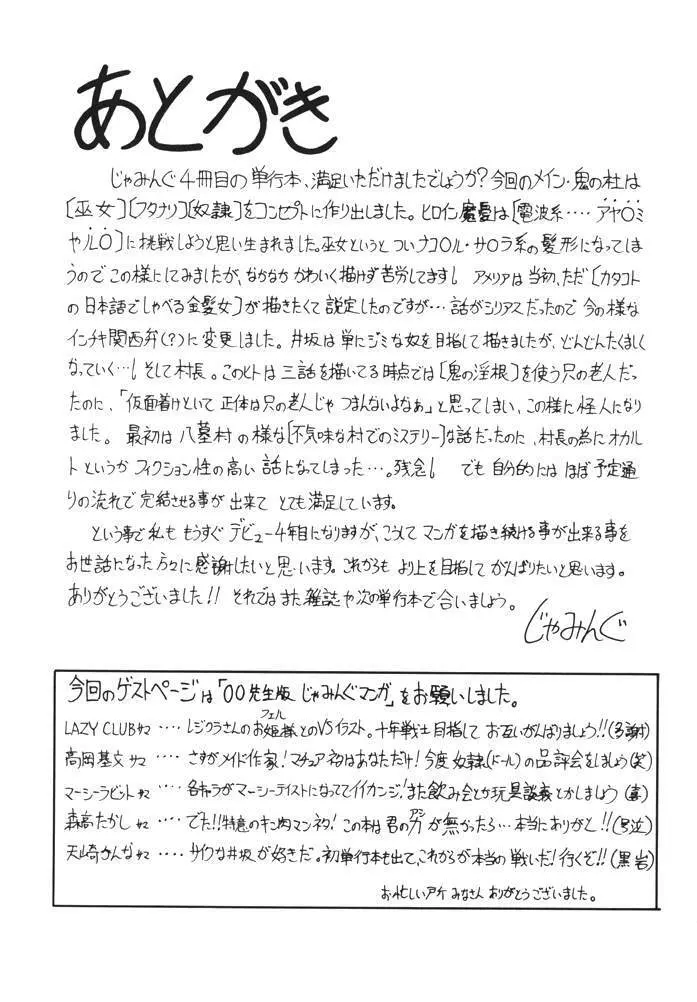 あとがき
じゃみんぐ4冊目の単行本、満足いただけましたでしょうか?今回のメイン・鬼の杜は
[巫女][フタナリ][奴隷]をコンセプトに作り出しました。ヒロイン魔憂は[電波系‥‥アヤ○ミ
や ル○]に挑戦しようと思い生まれました。巫女というと ついナコ○ル・サ○ラ系の髪形になってしま
うので この様にしてみましたが、なかなか かわいく描けず苦労してます! アメリアは当初、ただ[カタコト
の日本語でしゃべる金髪女]が描きたくて設定したのですが…話がシリアスだったので 今の様な
インチキ関西弁(?)に変更しました。井坂は単にジミな奴を目指して描きましたが、どんどんたくましく
なっていく…! そして村長。このヒトは三話を描いてる時点では[鬼の淫根]を使う只の老人だっ
たのに、「仮面着けといて 正体は只の老人じゃ つまんないよなぁ」と思ってしまい、この様に怪人になり
ました。 最初は八墓村の様な[不気味な村でのミステリー]な話だったのに、村長の為にオカル
トというか フィクション性の高い話になってしまった…。残念! でも自分的には ほぼ予定通
りの流れで完結させる事が出来て とても満足しています。
という事で私も もうすぐデビュー4年目になりますが、こうして マンガを描き続ける事が出来る事を
お世話になった方々に感謝したいと思います。これからも より上を目指して がんばりたいと思います。
ありがとうございました!! それではまた雑誌や次の単行本で合いましょう。
じゃみんぐ
今回のゲストページは「○○先生版 じゃみんぐマンガ」をお願いしました。
フェル
LAZY CLUBサマ ‥‥ レジクラさんのお姫様とのVSイラスト。十年戦士目指して お互いがんばりましょう!!(多謝)
高岡基文サマ ‥‥ さすがメイド作家!マチュア初はあなただけ!今度 奴隷(ドール)の品評会をしましょう(笑)
マーシーラビットサマ ‥‥ 各キャラがマーシーテイストになっててイイカンジ!また飲み会とか玩具談義とかしましょう(喜)
アシ
森高たかしサマ ‥‥ でた!!特意のキン肉マンネタ!この本は君の力が無かったら…本当にありがと!!(号泣)
天崎かんなサマ ‥‥ サイクな井坂が好きだ。初単行本も出て、これからが本当の戦いだ!行くぞ!!(黒岩)
お忙しい中 みなさん ありがとうございました。